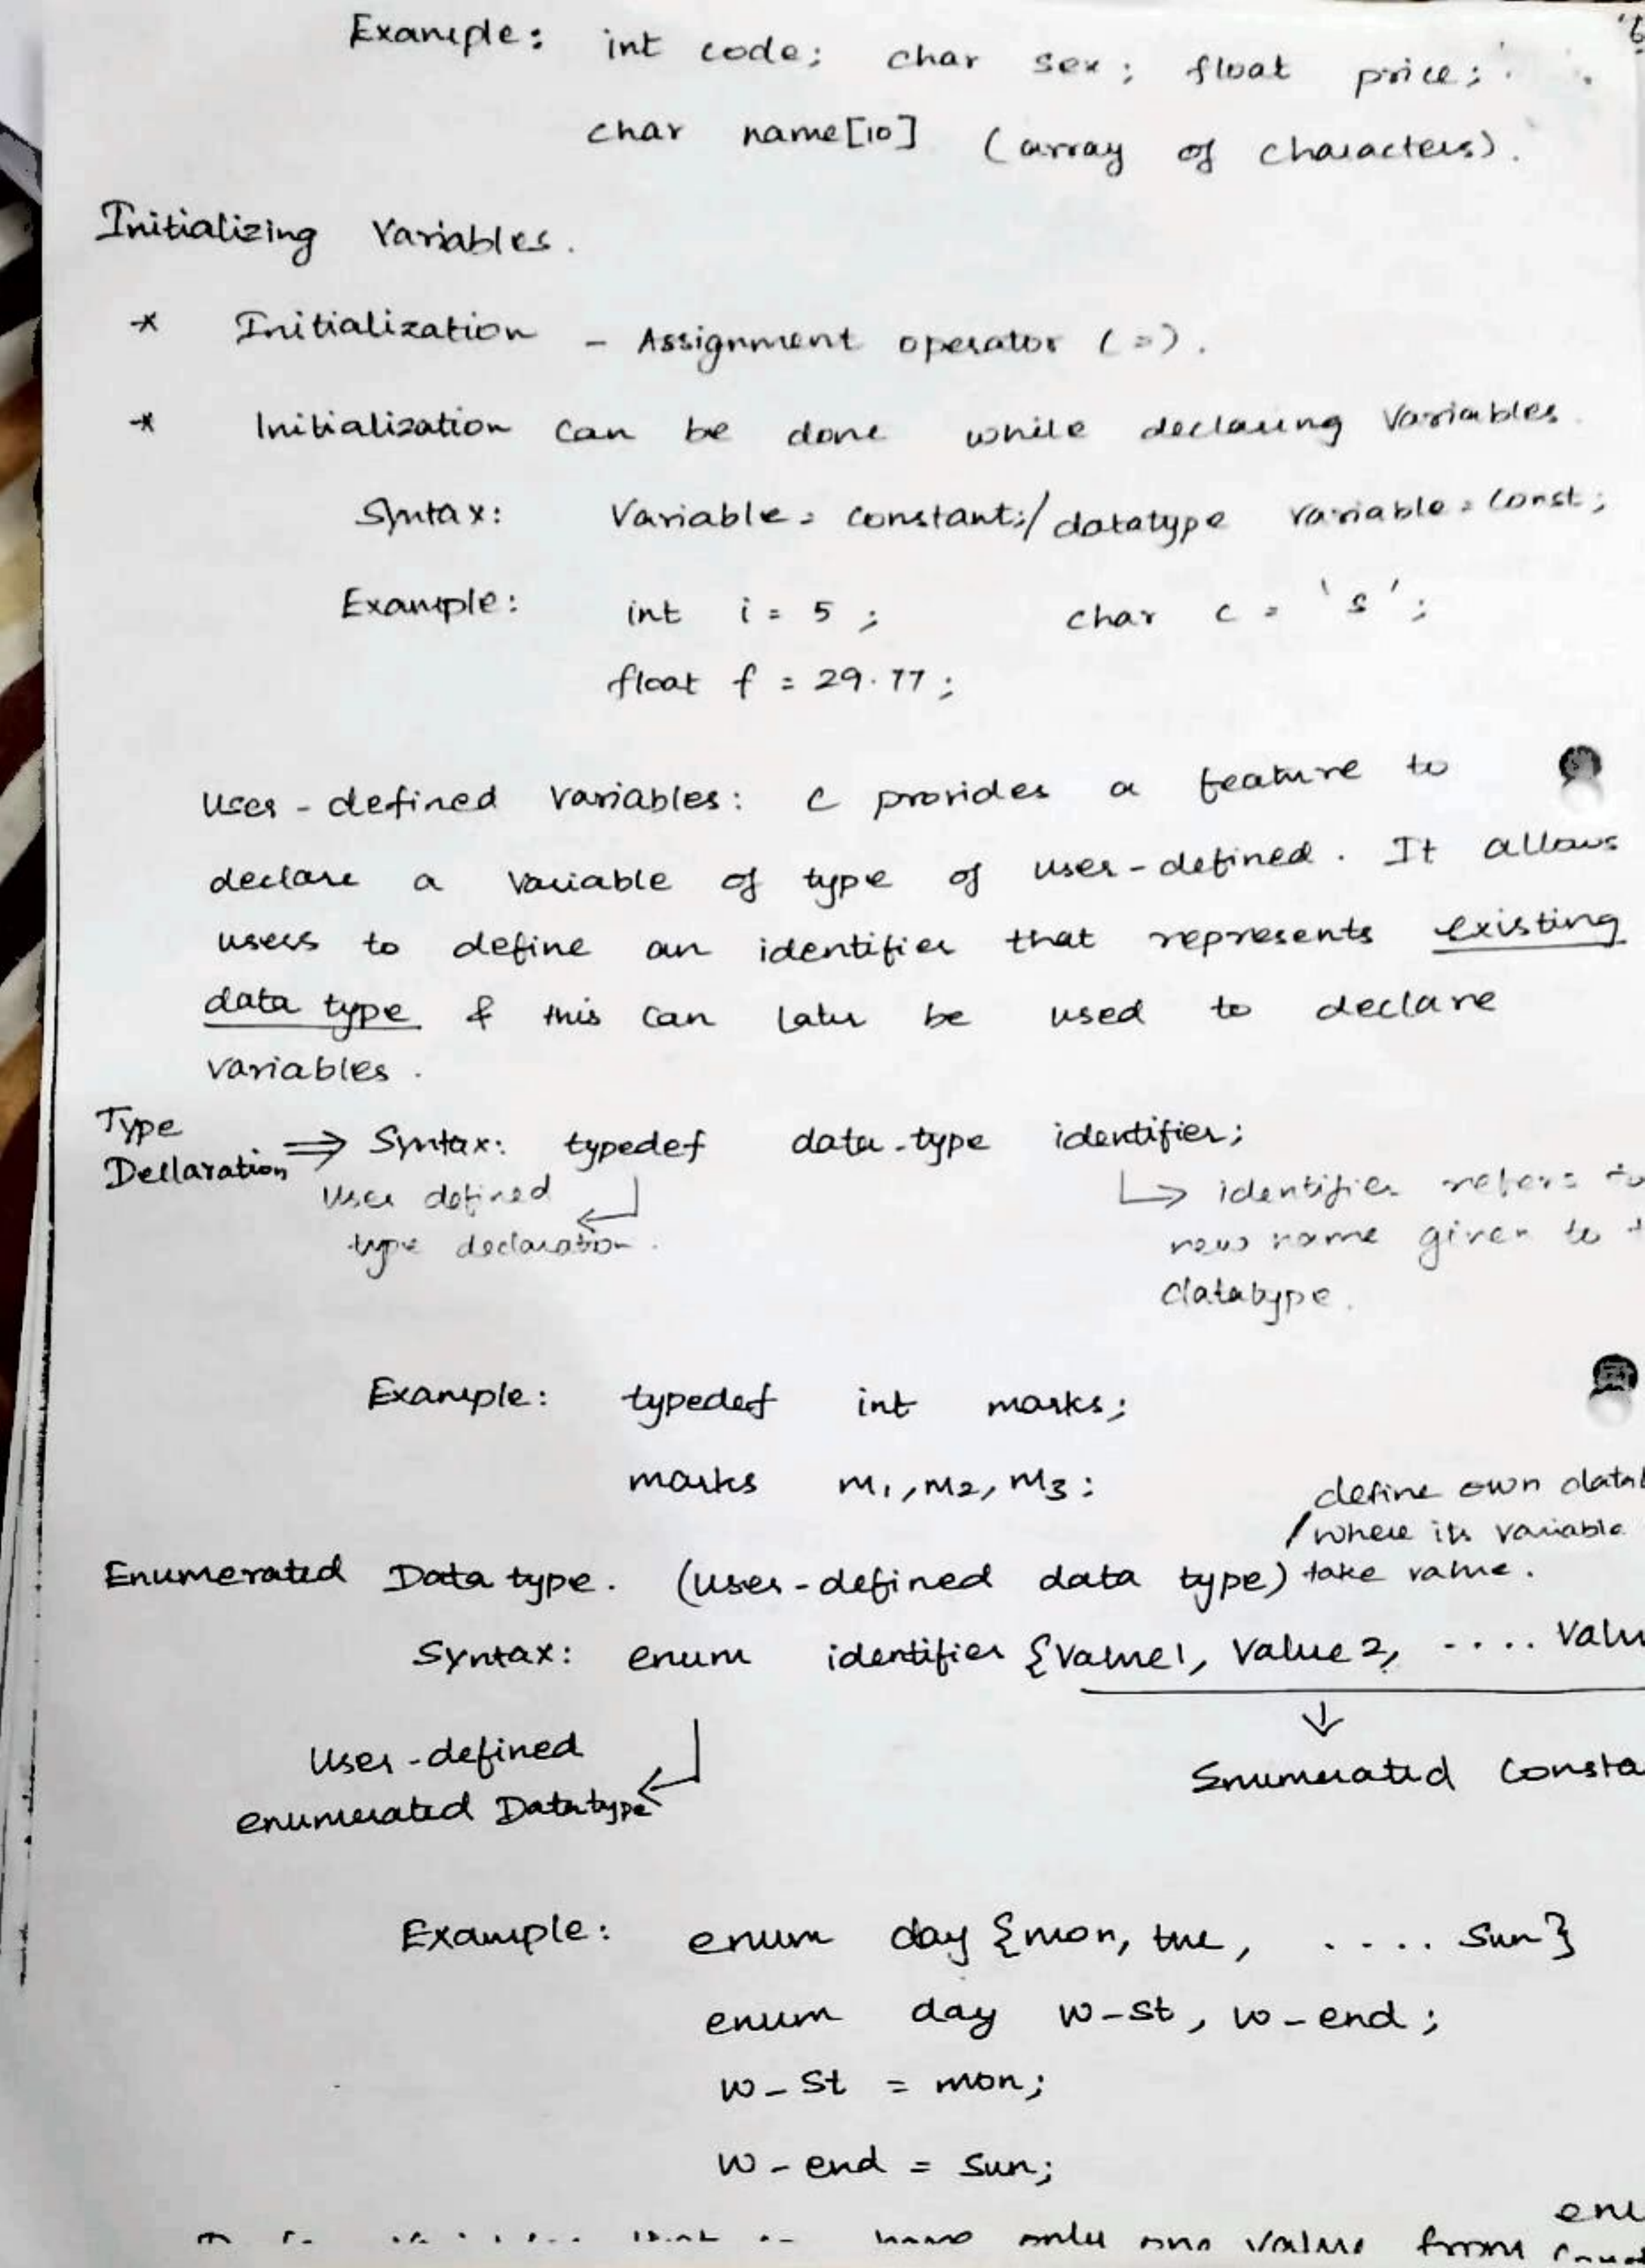 Example: int code; char sex; float price;
char name[10] (array of characters).
Initializing Variables.
* Initialization - Assignment operator (=).
* Initialization can be done while declaring Variables.
Syntax: Variable = constant;/datatype variable = const;
Example: int i = 5; char c = 's';
float f = 29.77;
User-defined variables: C provides a feature to
declare a variable of type of user-defined. It allows
users to define an identifier that represents existing
data type & this can later be used to declare
variables.
Type
Declaration ⇒ Syntax: typedef data-type identifier;
User defined
type declaration.
↳ identifier refers to
new name given to
datatype.
Example: typedef int marks;
marks m1, m2, m3;
define own
where its variable
Enumerated Data type. (User-defined data type) take value.
Syntax: enum identifier {Value1, Value2, ....
User-defined
enumerated Datatype
↓
Enumerated
Example: enum day {mon, tue, .... Sun}
enum day w-st, w-end;
w-st = mon;
w-end = sun;
only one value from